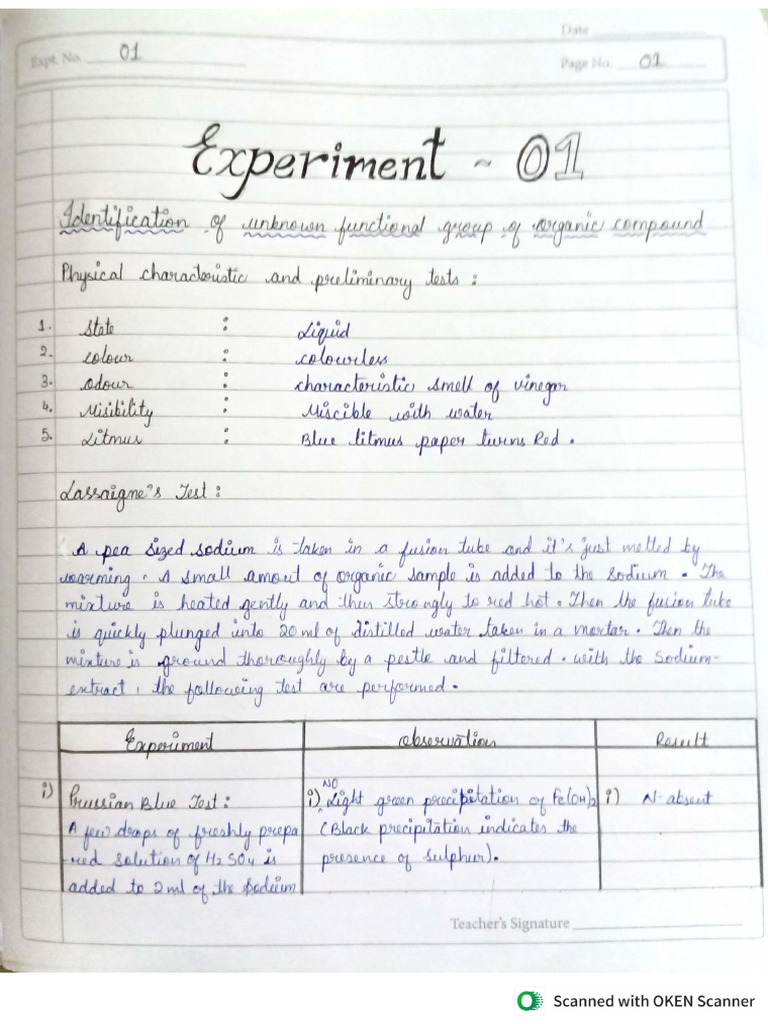 Date
Expt. No. 01
Page No. 01
Experiment - 01
Identification of unknown functional group of organic compound
Physical characteristic and preliminary tests :
1. State : Liquid
2. colour : colourless
3. Odour : characteristic smell of vinegar
4. Misibility : Miscible with water
5. Litmus : Blue litmus paper turns Red .
Lassaigne's Test :
A pea sized sodium is taken in a fusion tube and it's just melted by
warming . A small amout of organic sample is added to the sodium . The
mixture is heated gently and then strongly to red hot . Then the fusion tube
is quickly plunged into 20 ml of distilled water taken in a mortar . Then the
mixture is ground thoroughly by a pestle and filtered . with the sodium-
extract , the following test are performed .
Experiment observation Result
i) Prussian Blue Test : i) NO Light green precipitation of Fe(OH)2 i) N-absent
A few drops of freshly prepa (Black precipitation indicates the
-red solution of H2SO4 is presence of sulphur).
added to 2 ml of the sodium
Teacher's Signature
Scanned with OKEN Scanner